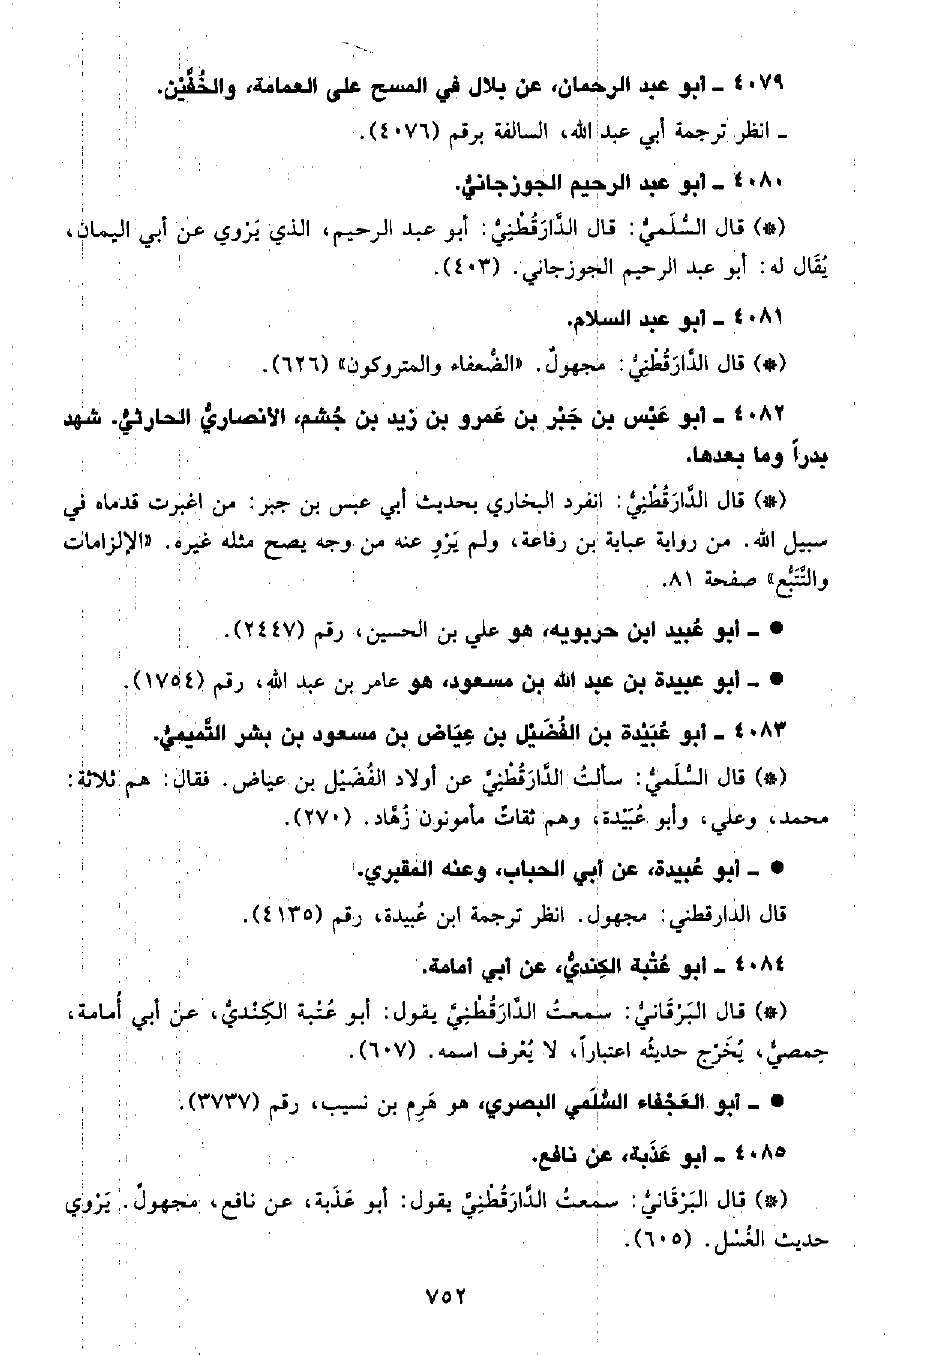 ٤٠٧٩ ـ أبو عبد الرحمان، عن بلال في المسح على العمامة، والخُفَّيْن.
ـ انظر ترجمة أبي عبد الله، السالفة برقم (٤٠٧٦).
٤٠٨٠ ـ أبو عبد الرحيم الجوزجانيُّ.
(*) قال السُّلَميُّ: قال الدَّارَقُطْنِيُّ: أبو عبد الرحيم، الذي يَرْوي عن أبي اليمان،
يُقَال له: أبو عبد الرحيم الجوزجاني. (٤٠٣).
٤٠٨١ ـ أبو عبد السلام.
(*) قال الدَّارَقُطْنِيُّ: مجهولٌ. «الضُّعفاء والمتروكون» (٦٢٦).
٤٠٨٢ ـ أبو عَبْس بن جَبْر بن عَمرو بن زيد بن جُشم، الأنصاريُّ الحارثيُّ. شهد
بدراً وما بعدها.
(*) قال الدَّارَقُطْنِيُّ: انفرد البخاري بحديث أبي عبس بن جبر: من اغبرت قدماه في
سبيل الله. من رواية عباية بن رفاعة، ولم يَرْوِ عنه من وجه يصح مثله غيره. «الإلزامات
والتَّتَبُّع» صفحة ٨١.
● ـ أبو عُبيد ابن حربويه، هو علي بن الحسين، رقم (٢٤٤٧).
● ـ أبو عبيدة بن عبد الله بن مسعود، هو عامر بن عبد الله، رقم (١٧٥٤).
٤٠٨٣ ـ أبو عُبَيْدة بن الفُضَيْل بن عِيَاض بن مسعود بن بشر التَّميميُّ.
(*) قال السُّلَميُّ: سألتُ الدَّارَقُطْنِيَّ عن أولاد الفُضَيْل بن عياض. فقال: هم ثلاثة:
محمد، وعلي، وأبو عُبَيْدة، وهم ثقاتٌ مأمونون زُهَّاد. (٢٧٠).
● ـ أبو عُبيدة، عن أبي الحباب، وعنه المقبري.
قال الدارقطني: مجهول. انظر ترجمة ابن عُبيدة، رقم (٤١٣٥).
٤٠٨٤ ـ أبو عُتْبة الكِنديُّ، عن أبي أمامة.
(*) قال البَرْقَانيُّ: سمعتُ الدَّارَقُطْنِيَّ يقول: أبو عُتْبة الكِنْديُّ، عن أبي أُمامة،
حمصيٌّ، يُخَرْج حديثُه اعتباراً، لا يُعْرف اسمه. (٦٠٧).
● ـ أبو العَجْفاء السُّلَمي البصري، هو هَرِم بن نسيب، رقم (٣٧٣٧).
٤٠٨٥ ـ أبو عَذَبة، عن نافع.
(*) قال البَرْقَانيُّ: سمعتُ الدَّارَقُطْنِيَّ يقول: أبو عَذَبة، عن نافع، مجهولٌ. يَرْوي
حديث الغُسْل. (٦٠٥).
٧٥٢